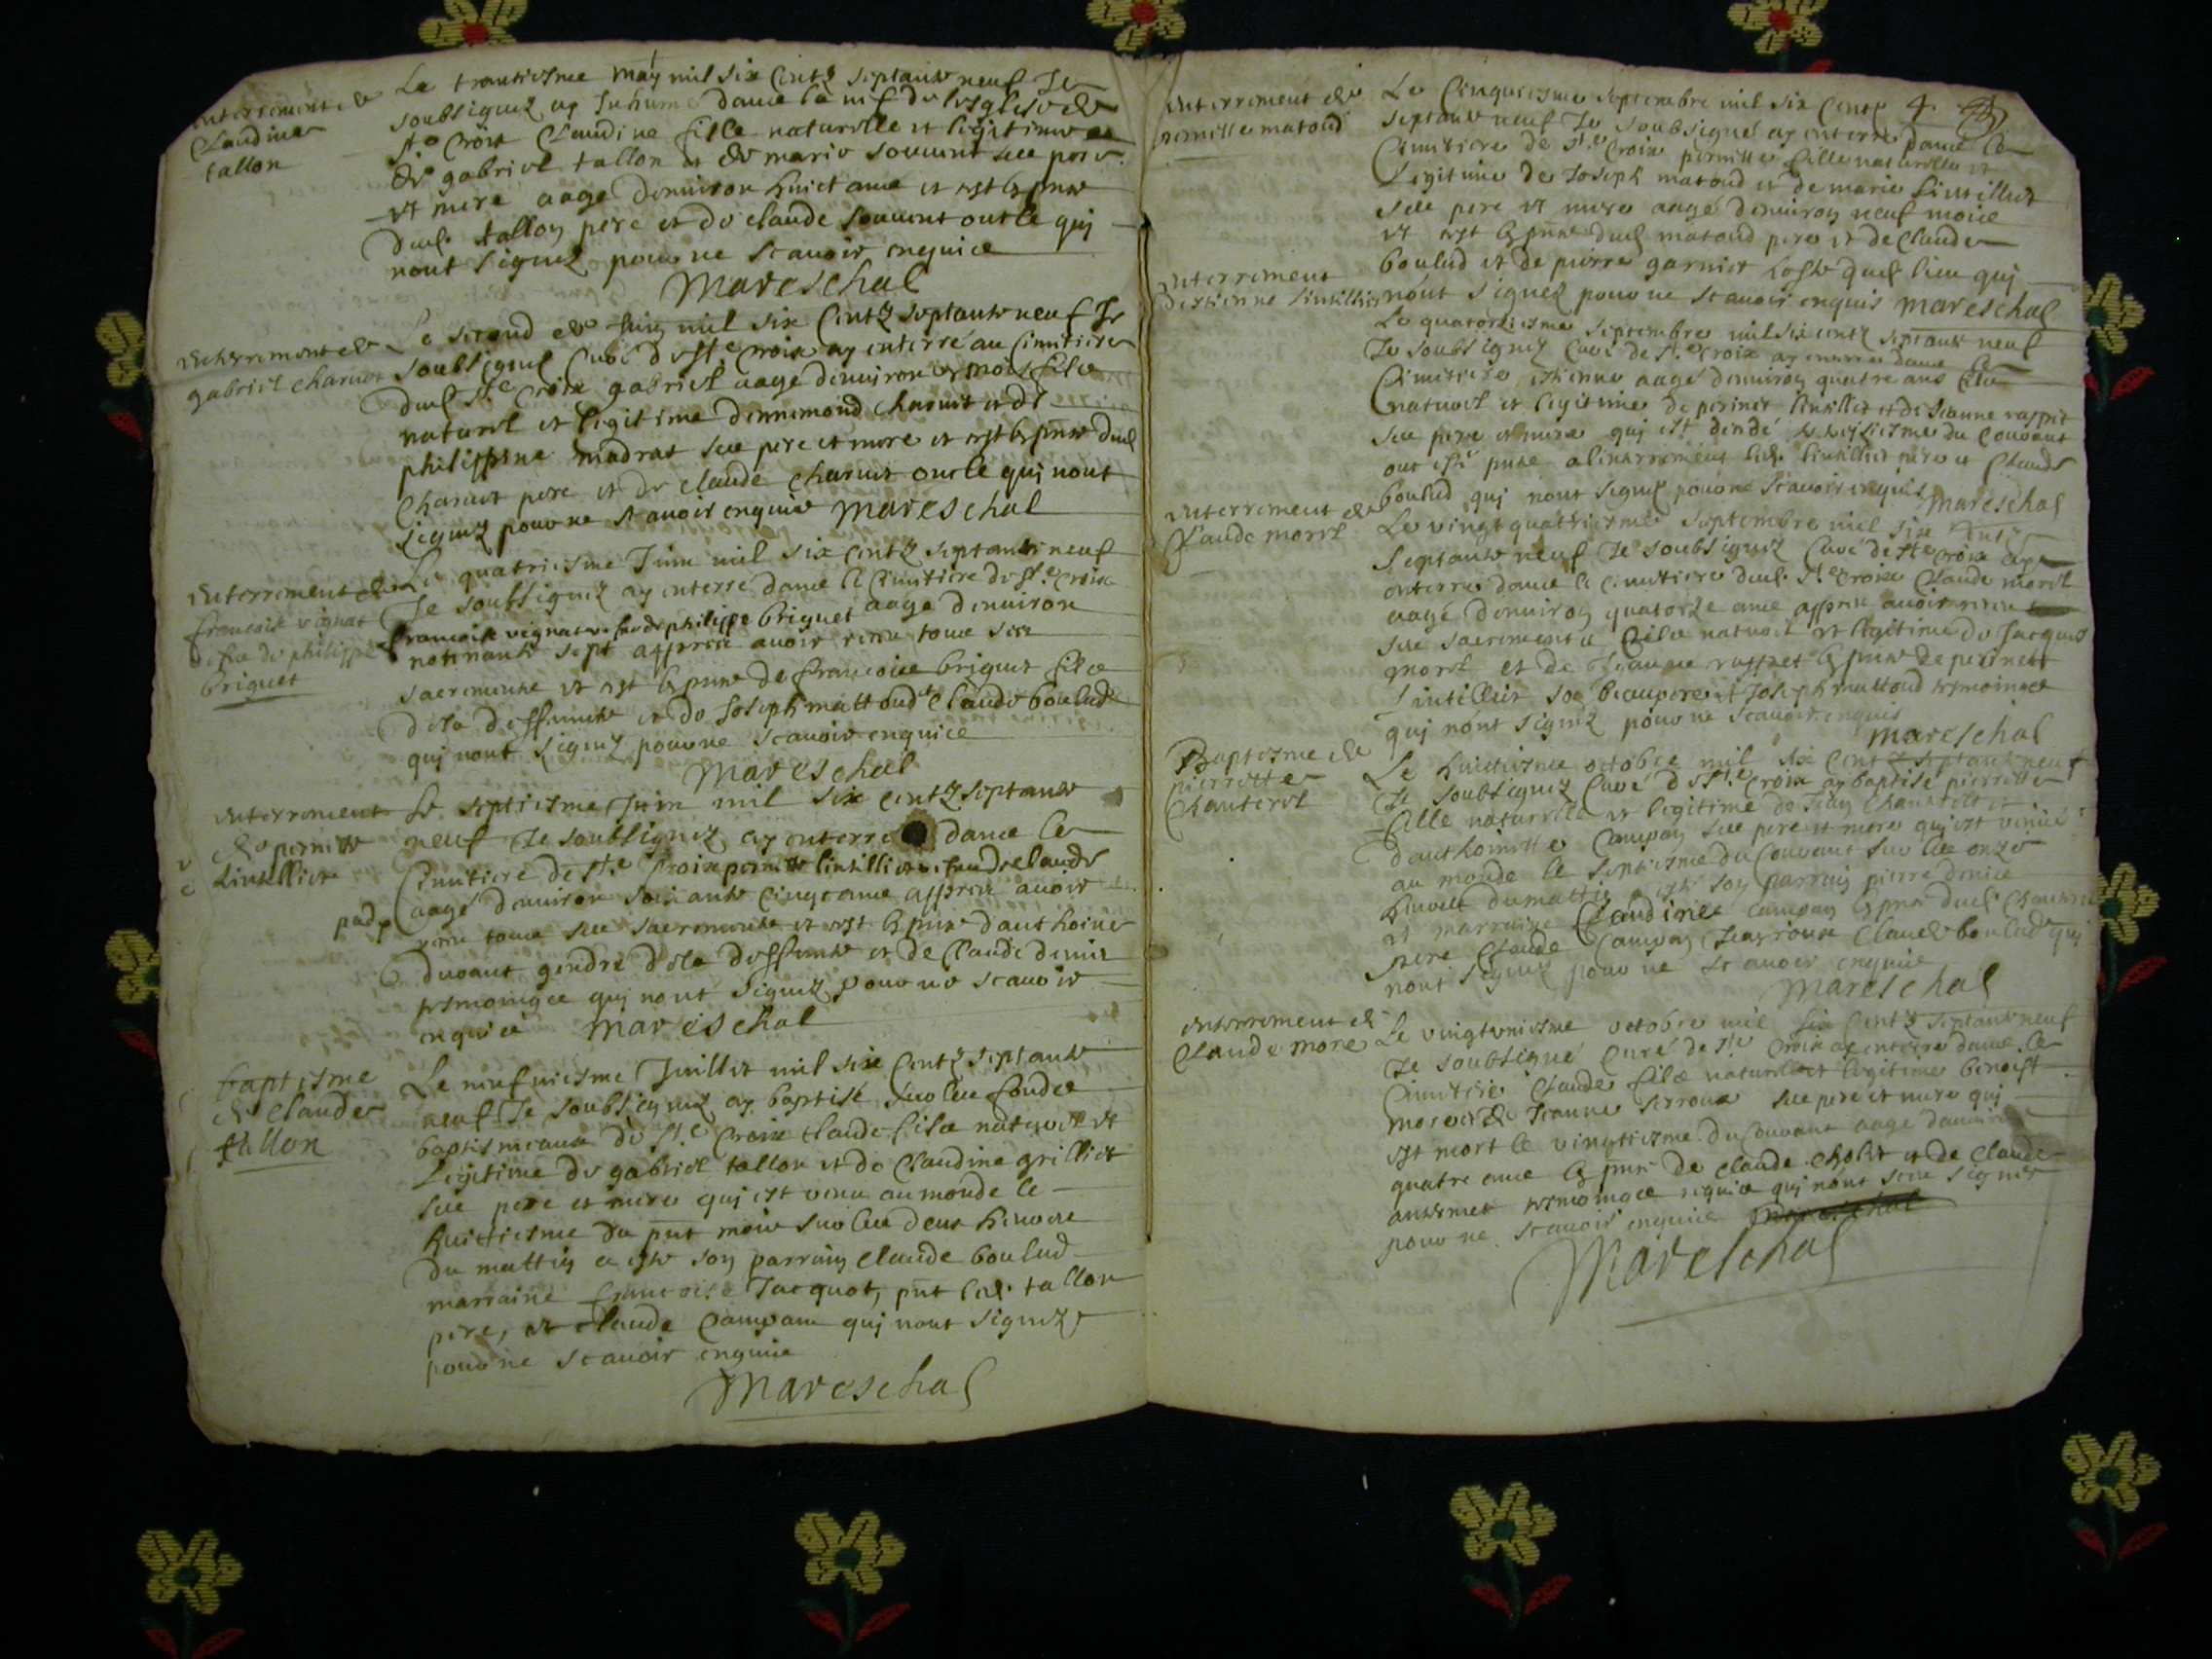 Interrement de
Claudine
tallon
Le trantiesme may mil six centz septante neuf Je
soubsignez ay Inhumé dans la nef de lesglise de
ste Croix Claudine fille naturelle et legitime
de gabriel tallon et de marie souvent ses pere
et mere aagé denviron huict ans et est es pnce
dud. tallon pere et de claude souvent oncle qui
nont signez pour ne scavoir enquis
Mareschal
Enterrement de
gabriel charvet
Le second de Juin mil six centz septante neuf Je
soubsignez Curé de ste Croix ay enterré au cimitiere
dud ste Croix gabriel aagé denviron mois filz
naturel et legitime dennemond charvet et de
philippine madrat ses pere et mere et est es pnce dud
Charvet pere et de claude charvet oncle qui nont
signez pour ne scavoir enquis Mareschal
Enterrement de
francoise vignat
vefve de philippe
briquet
Le quatriesme Juin mil six centz septante neuf
Je soubsignez ay enterré dans le cimitiere de ste Croix
francoise vignat vefve de philippe briquet aagé denviron
nonante sept appres avoir receu tous ses
sacrements et est es pnce de francois briquet filz
de la deffuncte et de Joseph mattoud et claude boulud
qui nont signez pour ne scavoir enquis
Mareschal
Enterrement
de pernette
Lintilliet
Le septiesme Juin mil six centz septante
neuf Je soubsignez ay enterré dans le
Cimitiere de ste Croix pernette lintilliet de claude
aagé denviron soixante cinq ans appres avoir
receu tous ses sacrements et est es pnce danthoine
durant gendre de la deffuncte et de Claude denis
tesmoings qui nont signez pour ne scavoir
enquis Mareschal
baptisme
de claude
tallon
Le neufviesme Juillet mil six centz septante
neuf Je soubsignez ay baptisé sur les fondz
baptismeaux de ste Croix claude filz naturel et
Legitime de gabriel tallon et de Claudine grilliet
ses pere et mere qui est venu au monde le
huictiesme du pnt mois sur les deux heures
du mattin a esté son parrain claude boulud
marraine francoise Jacquot, pnt led. tallon
pere, et claude Campan qui nont signez
pour ne scavoir enquis
Mareschal
Enterrement de
pernette matoud
Le Cinquiesme septembre mil six centz 4
septante neuf Je soubsigné ay enterré dans le
Cimitiere de ste Croix pernette fille naturelle et
Legitime de Joseph matoud et de marie lintilliet
ses pere et mere aagé denviron neuf mois
et est es pnce dud matoud pere et de claude
boulud et de pierre garnier hoste dud. lieu qui
nont signez pour ne scavoir enquis Mareschal
Enterrement
destienne lintilliet
Le quatorziesme septembre mil six centz septante neuf
Je soubsignez Curé de ste Croix ay enterré dans le
Cimitiere estienne aagé denviron quatre ans filz
naturel et legitime de perinet lintilliet et de Jeanne
ses pere et mere qui est du courant
ont esté pnts a lenterrement led. lintilliet pere et Claude
boulud qui nont signez pour ne scavoir enquis Mareschal
Enterrement de
Claude morel
Le vingt quattriesme septembre mil six centz
septante neuf Je soubsignez Curé de ste Croix ay
enterré dans le cimitiere dud. ste Croix Claude morel
aagé denviron quatorze ans appres avoir receu
ses sacrements filz naturel et legitime de Jacques
morel et de Jeanne es pnce de perinet
Lintilliet son beaupere et Joseph mattoud tesmoings
qui nont signez pour ne scavoir enquis
Mareschal
Baptisme de
pierrette
Chanterel
Le huictiesme octobre mil six centz septante neuf
Je soubsignez Curé de ste Croix ay baptisé pierrette
fille naturelle et legitime de Jean Chanterel et
danthoinette Campan ses pere et mere qui est venue
au monde le septiesme du Courant sur les onze
heures du mattin a esté son parrain pierre denis
et marraine Claudine campan es pnce dud. Chanterel
pere Claude Campan Claude boulud qui
nont signez pour ne scavoir enquis
Mareschal
Enterrement de
Claude more
Le vingtuniesme octobre mil six centz septante neuf
Je soubsigné Curé de ste Croix ay enterré dans le
Cimitiere Claude filz naturel et legitime benoist
morel et de Jeanne ses pere et mere qui
est mort le vingtiesme du Courant aagé denviron
quatre ans es pnce de claude et de Claude
tesmoings requis qui nont sceu signer
pour ne scavoir enquis
Mareschal